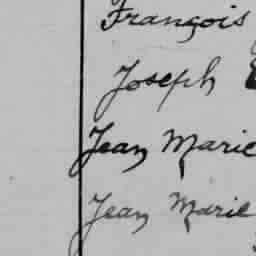 François
Joseph
Jean Marie
Jean Marie